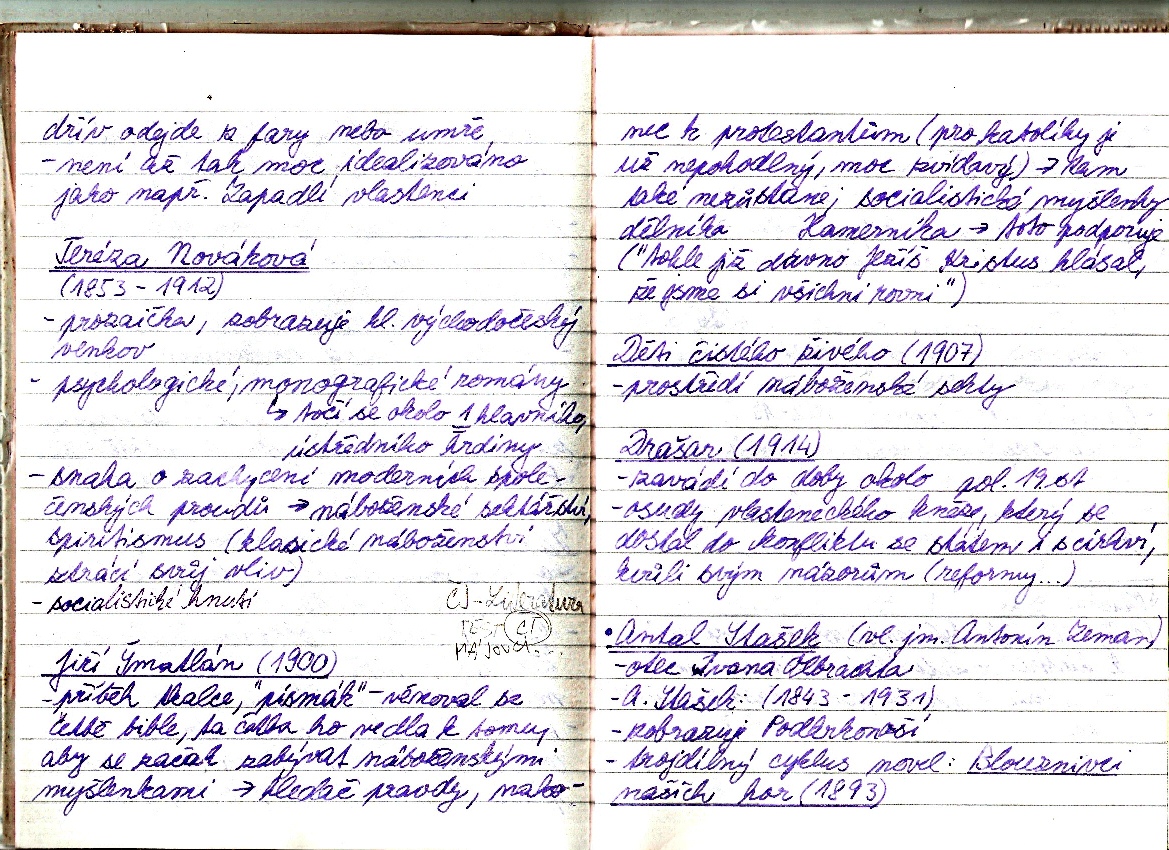 dřív odejde z fary nebo umře
- není až tak moc idealizováno
jako např. Zapadlí vlastenci
Teréza Nováková
(1853 - 1912)
- prozaička, zobrazuje hl. východočeský
venkov
- psychologické, monografické romány
↳ točí se okolo 1 hlavního,
ústředního hrdiny
- snaha o zachycení moderních spole-
čenských proudů → náboženské sektářství,
spiritismus (klasické náboženství
ztrácí svůj vliv)
- socialistické hnutí
ČJ - Literatura
TEST ČJ
MÁJOVCI...
Jiří Šmatlán (1900)
- příběh tkalce, "písmák" - věnoval se
četbě bible, ta četba ho vedla k tomu,
aby se začal zabývat náboženskými
myšlenkami → hledač pravdy, nako-
nec k protestantům (pro katolíky je
už nepohodlný, moc zvídavý) → tam
také nezůstane, socialistické myšlenky
dělníka Kamerníka → toto podporuje
("tohle již dávno Ježíš Kristus hlásal,
že jsme si všichni rovni")
Děti čistého živého (1907)
- prostředí náboženské sekty
Drašar (1914)
- zavádí do doby okolo pol. 19.st
- osudy vlasteneckého kněze, který se
dostal do konfliktu se státem i s církví,
kvůli svým názorům (reformy...)
• Antal Stašek (vl. jm. Antonín Zeman)
- otec Ivana Olbrachta
- A. Stašek: (1843 - 1931)
- zobrazuje Podkrkonoší
- trojdílný cyklus novel: Blouznivci
našich hor (1893)